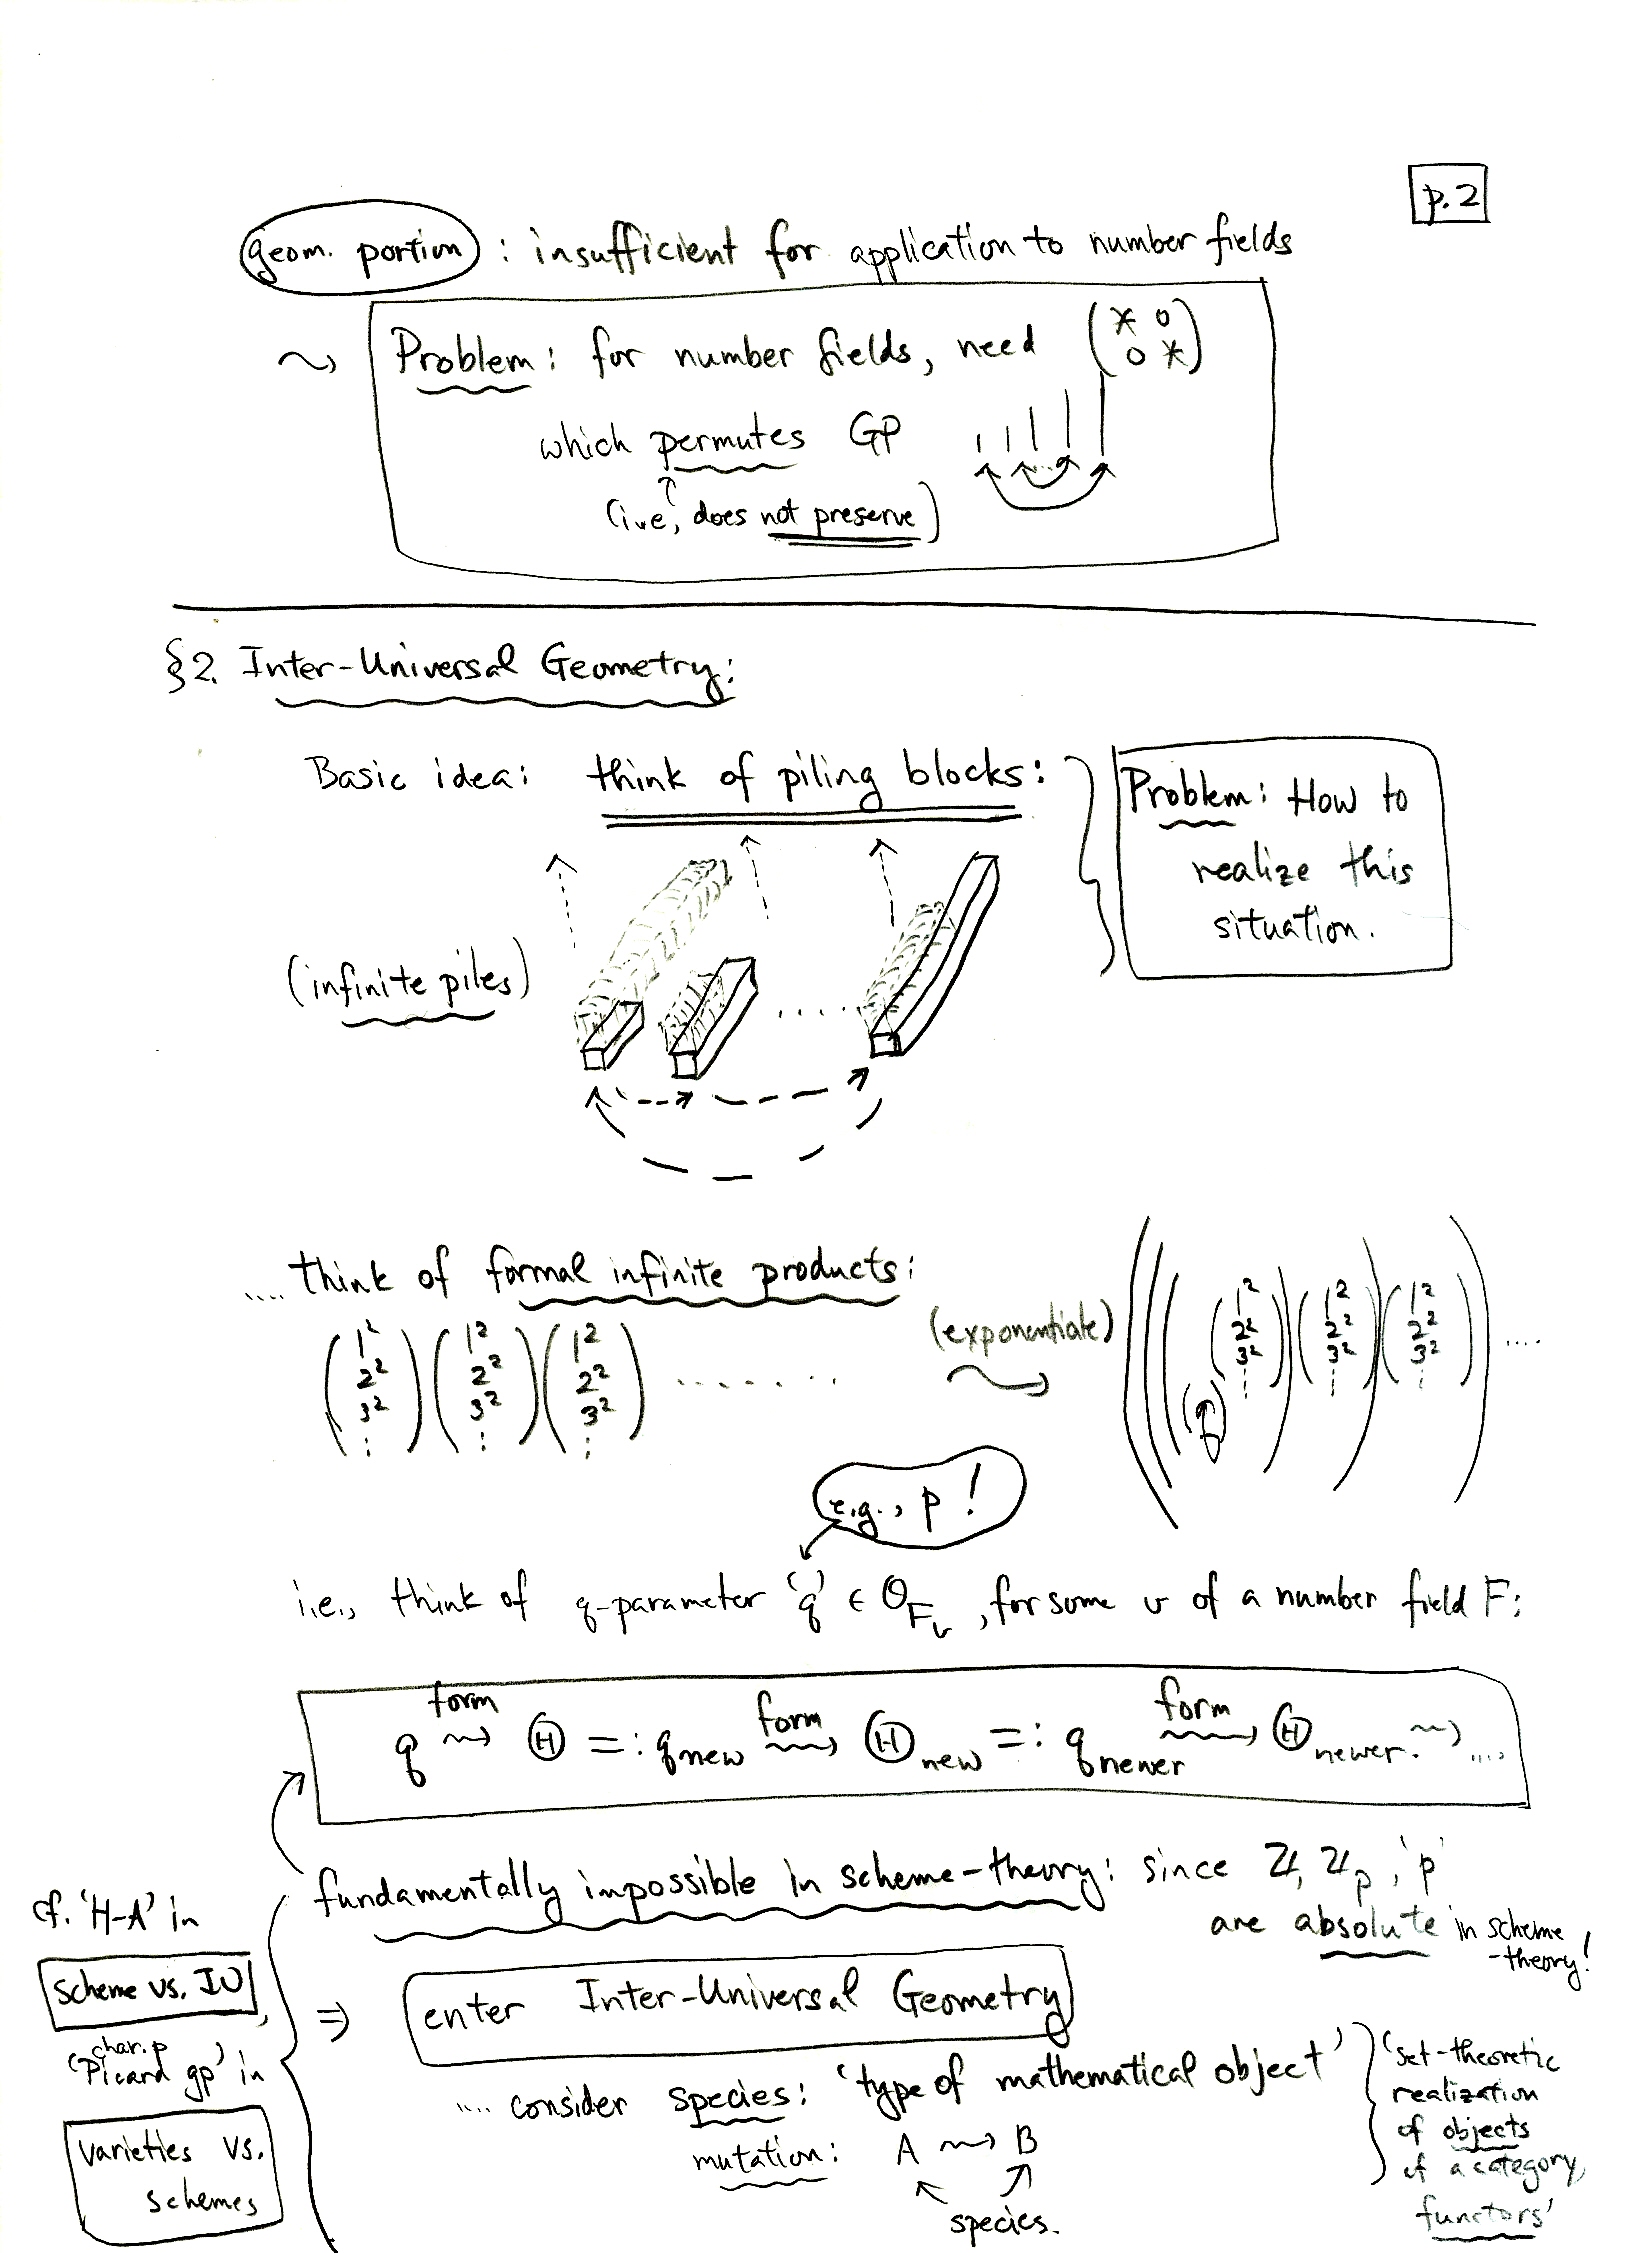 p.2
geom. portion : insufficient for application to number fields
Problem: for number fields, need ( * 0 0 * )
which permutes GP
(i.e., does not preserve)
§2. Inter-Universal Geometry:
Basic idea: think of piling blocks:
Problem: How to
realize this
situation.
(infinite piles)
.... think of formal infinite products:
(1² 2² 3² ⋮) (1² 2² 3² ⋮) (1² 2² 3² ⋮) .......
(exponentiate)
(((( (1² 2² 3² ⋮) ) (1² 2² 3² ⋮) ) (1² 2² 3² ⋮) ) ....
e.g., p !
i.e., think of q-parameter 'q' ∈ O_{F_v}, for some v of a number field F:
q ⇝ form Θ =: q_new ⇝ form Θ_new =: q_newer ⇝ form Θ_newer. ⇝ ....
fundamentally impossible in scheme-theory: since ℤ, ℤ_p, 'p'
are absolute in scheme
-theory!
cf. 'H-A' in
scheme vs. IU,
char. p
'Picard gp' in
varieties vs.
schemes
⇒ enter Inter-Universal Geometry
.... consider species: 'type of mathematical object'
mutation: A ⇝ B
species.
'set-theoretic
realization
of objects
of a category,
functors'